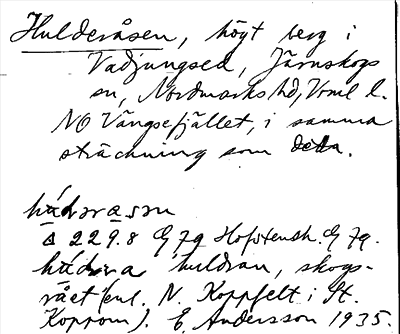 Hulderåsen, högt berg i
Vadjungsed, Järnskogs
sn, Nordmarks hd, Vrml l.
NO Vängsefjället, i samma
sträckning som detta.
229.8 G 7q Hofstensh. G 7q.
huldran, skogs-
rået (enl. N. Koppfelt i St.
Koppom). E. Andersson 1935.